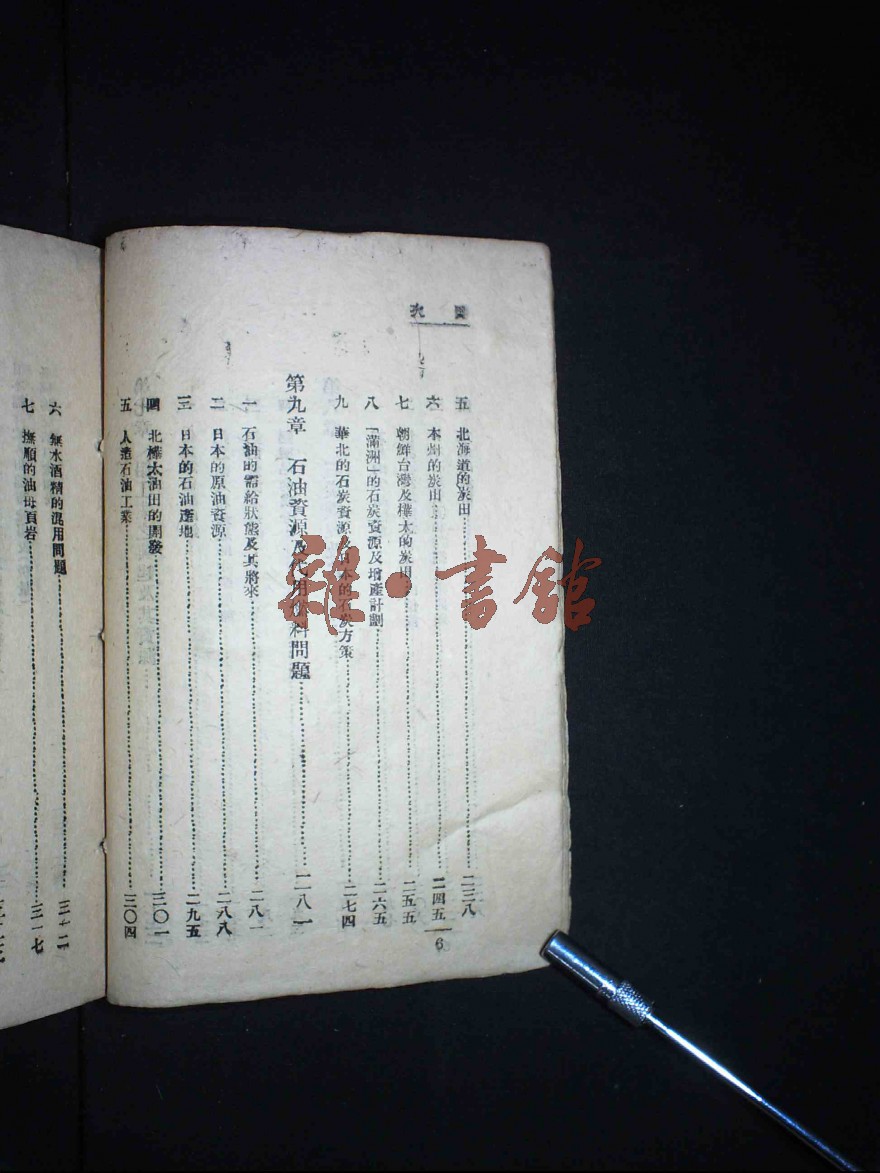 目次
五 北海道的炭田 二三八
六 本州的炭田 二四五
七 朝鮮台灣及樺太的炭田 二五五
八 「滿洲」的石炭資源及增產計劃 二六五
九 華北的石炭資源 日本的石炭方策 二七四
第九章 石油資源及代用燃料問題 二八一
一 石油的需給狀態及其將來 二八一
二 日本的原油資源 二八八
三 日本的石油產地 二九五
四 北樺太油田的開發 三〇一
五 人造石油工業 三〇四
6
六 無水酒精的混用問題 三一二
七 撫順的油母頁岩 三一七
雜·書館